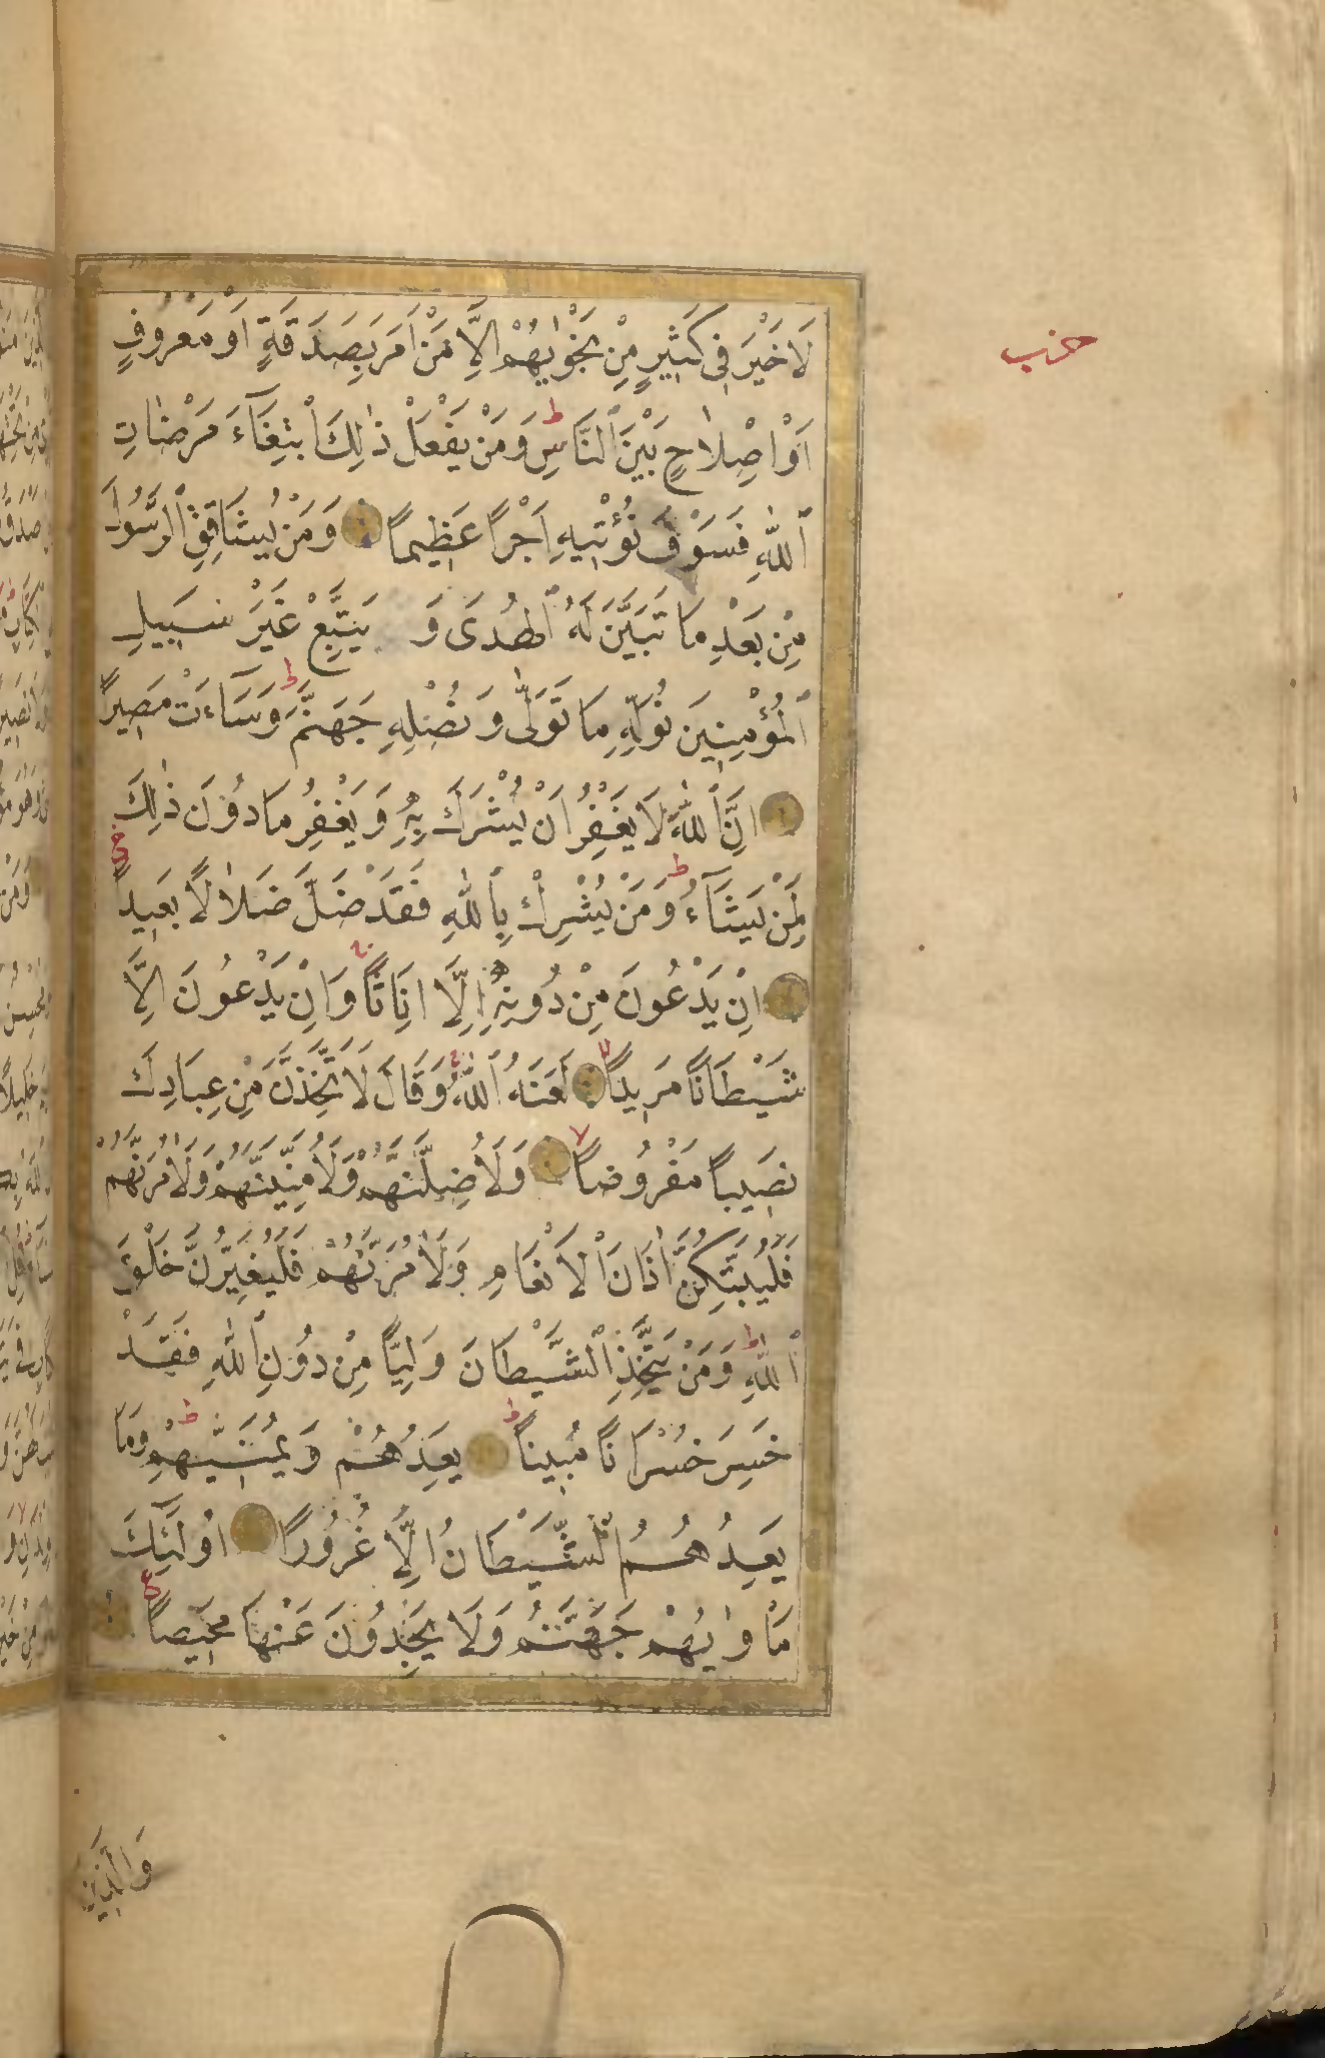 حزب
لَا خَيْرَ فِي كَثِيرٍ مِنْ نَجْوٰيهُمْ اِلَّا مَنْ اَمَرَ بِصَدَقَةٍ اَوْ مَعْرُوفٍ
اَوْ اِصْلَاحٍ بَيْنَ ٱلنَّاسِ ط وَمَنْ يَفْعَلْ ذٰلِكَ ٱبْتِغَآءَ مَرْضَاتِ
ٱللّٰهِ فَسَوْفَ نُؤْتِيهِ اَجْرًا عَظِيمًا وَمَنْ يُشَاقِقِ ٱلرَّسُولَ
مِنْ بَعْدِ مَا تَبَيَّنَ لَهُ ٱلْهُدَى وَ يَتَّبِعْ غَيْرَ سَبِيلِ
ٱلْمُؤْمِنِينَ نُوَلِّهِ مَا تَوَلّٰى وَنُصْلِهِ جَهَنَّمَ ط وَسَآءَتْ مَصِيرًا
اِنَّ ٱللّٰهَ لَا يَغْفِرُ اَنْ يُشْرَكَ بِهِ وَيَغْفِرُ مَا دُونَ ذٰلِكَ
لِمَنْ يَشَآءُ ط وَمَنْ يُشْرِكْ بِٱللّٰهِ فَقَدْ ضَلَّ ضَلَالًا بَعِيدًا
اِنْ يَدْعُونَ مِنْ دُونِهِ اِلَّا اِنَاثًا ج وَاِنْ يَدْعُونَ اِلَّا
شَيْطَانًا مَرِيدًا لا لَعَنَهُ ٱللّٰهُ وَقَالَ لَاَتَّخِذَنَّ مِنْ عِبَادِكَ
نَصِيبًا مَفْرُوضًا لا وَلَاُضِلَّنَّهُمْ وَلَاُمَنِّيَنَّهُمْ وَلَاٰمُرَنَّهُمْ
فَلَيُبَتِّكُنَّ اٰذَانَ ٱلْاَنْعَامِ وَلَاٰمُرَنَّهُمْ فَلَيُغَيِّرُنَّ خَلْقَ
ٱللّٰهِ ط وَمَنْ يَتَّخِذِ ٱلشَّيْطَانَ وَلِيًّا مِنْ دُونِ ٱللّٰهِ فَقَدْ
خَسِرَ خُسْرَانًا مُبِينًا ط يَعِدُهُمْ وَيُمَنِّيهِمْ ط وَمَا
يَعِدُهُمُ ٱلشَّيْطَانُ اِلَّا غُرُورًا اُولَٓئِكَ
مَاْوٰيهُمْ جَهَنَّمُ وَلَا يَجِدُونَ عَنْهَا مَحِيصًا
وَالَّذِينَ